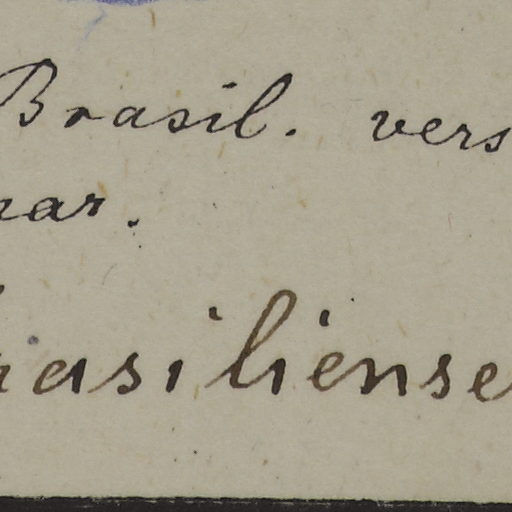 Brasil. vers
ar.
asiliense